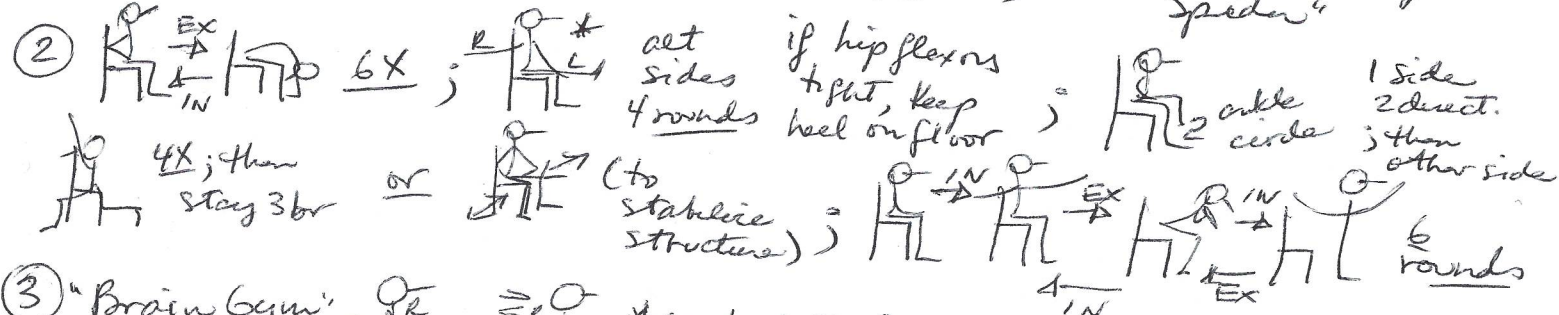 Spider"
② EX
IN
6X ;
R * L
alt
sides
4 rounds
if hip flexors
tight, keep
heel on floor ;
ankle
circle
1 side
2 direct.
; then
other side
4X ; then
stay 3 br
or
(to
stabilize
structure) ;
IN
EX
IN
IN
EX
6
rounds
③ "Brain Gym"
R